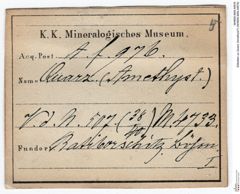 K. K. Mineralogisches Museum.
Acq.-Post A. f. 976.
Name Quarz (Amethyst.)
V. d. N. 577 (38 M. 4733
Fundort Ratiborschitz, Böhm.
I